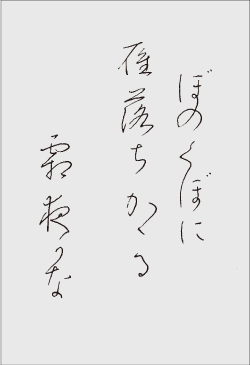 ぼのくぼに
雁落ちかゝる
霜夜かな